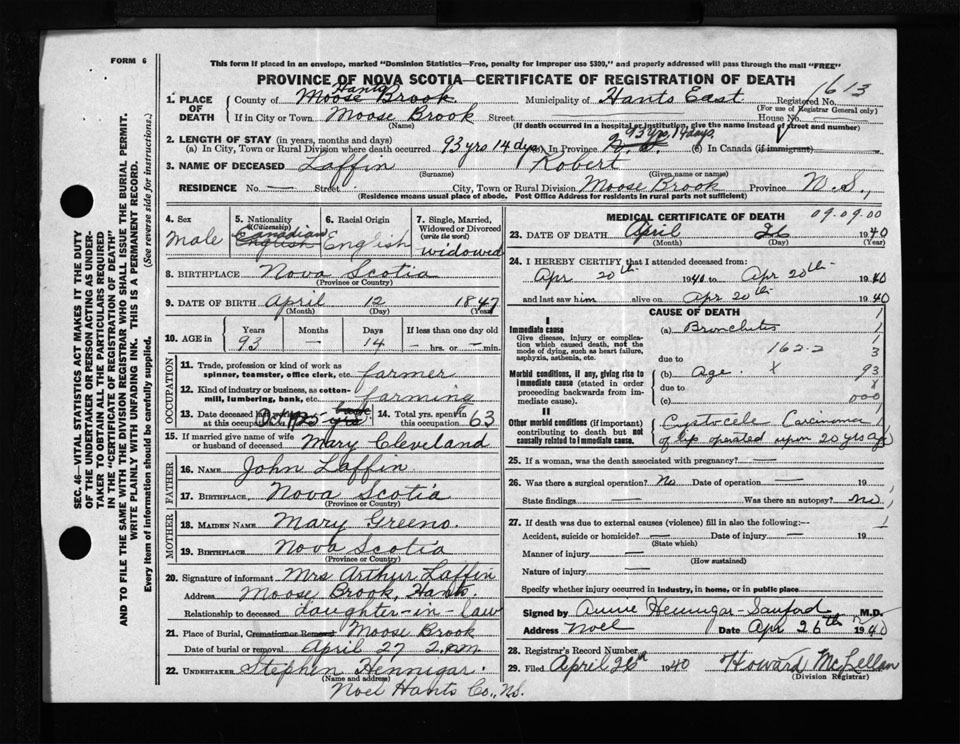 FORM 6
This form if placed in an envelope, marked "Dominion Statistics—Free, penalty for improper use $300," and properly addressed will pass through the mail "FREE"
PROVINCE OF NOVA SCOTIA—CERTIFICATE OF REGISTRATION OF DEATH
1613
1. PLACE OF DEATH
County of Moose Brook Hants Municipality of Hants East Registered No.
(For use of Registrar General only)
If in City or Town Moose Brook Street House No.
(Name) (If death occurred in a hospital or institution, give the name instead of street and number)
93 yrs, 14 days.
2. LENGTH OF STAY (in years, months and days)
(a) In City, Town or Rural Division where death occurred 93 yrs 14 dys (b) In Province N.S. (c) In Canada (if immigrant)
3. NAME OF DECEASED Laffin Robert
(Surname) (Given name or names)
RESIDENCE No. — Street City, Town or Rural Division Moose Brook Province N.S.,
(Residence means usual place of abode. Post Office Address for residents in rural parts not sufficient)
4. Sex
male
5. Nationality (Citizenship)
Canadian
English
6. Racial Origin
English
7. Single, Married, Widowed or Divorced (write the word)
widowed
8. BIRTHPLACE Nova Scotia
(Province or Country)
9. DATE OF BIRTH April 12 1847
(Month) (Day) (Year)
10. AGE in Years Months Days If less than one day old
93 — 14 — hrs. or — min.
OCCUPATION
11. Trade, profession or kind of work as spinner, teamster, office clerk, etc. farmer
12. Kind of industry or business, as cotton-mill, lumbering, bank, etc. farming
13. Date deceased last worked at this occupation
14. Total yrs. spent in this occupation 63
15. If married give name of wife or husband of deceased Mary Cleveland
FATHER
16. NAME John Laffin
17. BIRTHPLACE, Nova Scotia
(Province or Country)
MOTHER
18. MAIDEN NAME Mary Greeno.
19. BIRTHPLACE Nova Scotia
(Province or Country)
20. Signature of informant Mrs Arthur Laffin
Address Moose Brook, Hants.
Relationship to deceased daughter-in-law
21. Place of Burial, Cremation or Removal Moose Brook
Date of burial or removal April 27 2. p.m
22. UNDERTAKER Stephen Hennigar.
(Name and address)
Noel Hants Co., N.S.
MEDICAL CERTIFICATE OF DEATH 09.09.00
23. DATE OF DEATH April 26 1940
(Month) (Day) (Year)
24. I HEREBY CERTIFY that I attended deceased from:
Apr 20th 1940 to Apr 20th 1940
and last saw him alive on Apr 20th 1940
CAUSE OF DEATH
I
Immediate cause (a) Bronchitis
Give disease, injury or complication which caused death, not the mode of dying, such as heart failure, asphyxia, asthenia, etc.
due to 162-2 3
Morbid conditions, if any, giving rise to immediate cause (stated in order proceeding backwards from immediate cause).
(b) Age. X 93
due to X
(c) 000
II
Other morbid conditions (if important) contributing to death but not causally related to immediate cause.
Cystocele Carcinoma
of lip operated upon 20 yrs ago
25. If a woman, was the death associated with pregnancy? —
26. Was there a surgical operation? No Date of operation — 19
State findings — Was there an autopsy? no
27. If death was due to external causes (violence) fill in also the following:—
Accident, suicide or homicide? — Date of injury — 19
(State which)
Manner of injury —
(How sustained)
Nature of injury —
Specify whether injury occurred in industry, in home, or in public place
Signed by Annie Hennigar-Sanford M.D.
Address Noel Date Apr 26th 1940
28. Registrar's Record Number
29. Filed April 26th 1940 Howard McLellan
(Division Registrar)
SEC. 46—VITAL STATISTICS ACT MAKES IT THE DUTY
OF THE UNDERTAKER OR PERSON ACTING AS UNDER-
TAKER TO OBTAIN ALL THE PARTICULARS REQUIRED
IN THE "CERTIFICATE OF REGISTRATION OF DEATH"
AND TO FILE THE SAME WITH THE DIVISION REGISTRAR WHO SHALL ISSUE THE BURIAL PERMIT.
WRITE PLAINLY WITH UNFADING INK. THIS IS A PERMANENT RECORD.
Every item of information should be carefully supplied. (See reverse side for instructions.)